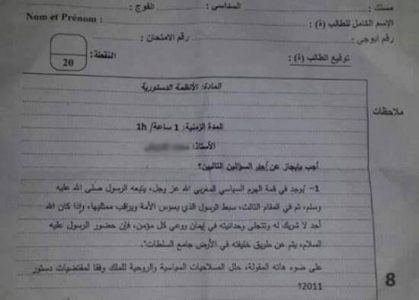 مسلك : السداسي : الفوج :
Nom et Prénom :
الإسم الكامل للطالب (ة) :
رقم ابوجي : رقم الامتحان :
النقطة :
20
توقيع الطالب (ة) :
المادة: الأنظمة الدستورية
ملاحظات
المدة الزمنية: 1 ساعة/ 1h
الأستاذ:
أجب بإيجاز عن أحد السؤالين التاليين؟
1- "يوجد في قمة الهرم السياسي المغربي الله عز وجل، يتبعه الرسول صلى الله عليه
وسلم، ثم في المقام الثالث، سبط الرسول الذي يسوس الأمة ويراقب ممثليها، وإذا كان الله
أحد لا شريك له وتتجلى وحدانيته في إيمان ووعي كل مؤمن، فإن حضور الرسول عليه
السلام، يتم عن طريق خليفته في الأرض جامع السلطات".
على ضوء هاته المقولة، حلل الصلاحيات السياسية والروحية للملك وفقا لمقتضيات دستور
2011؟
8